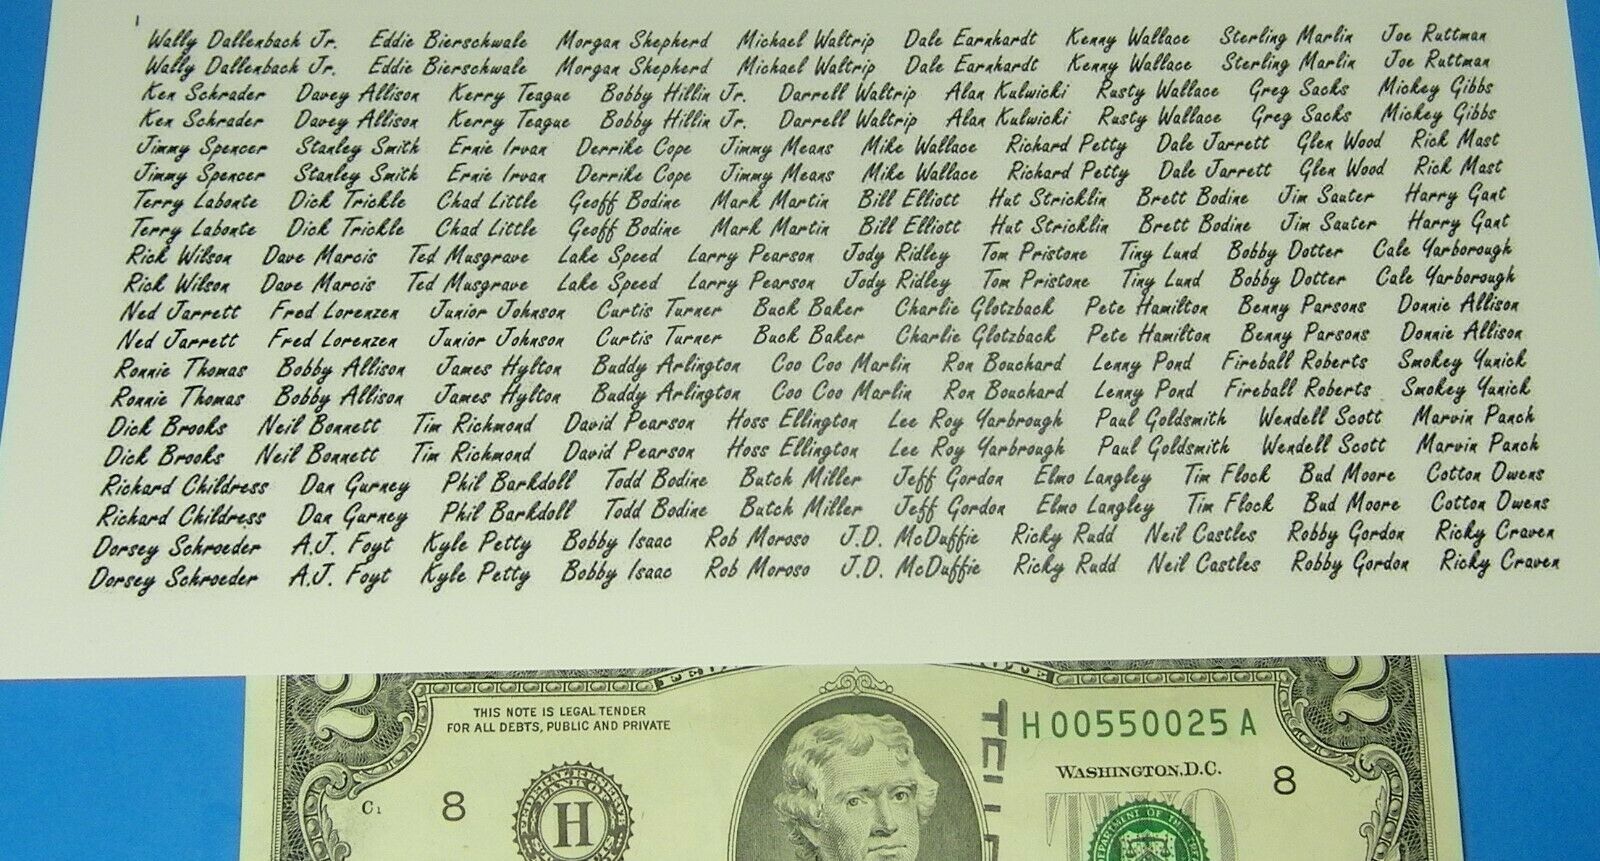 Wally Dallenbach Jr. Eddie Bierschwale Morgan Shepherd Michael Waltrip Dale Earnhardt Kenny Wallace Sterling Marlin Joe Ruttman
Wally Dallenbach Jr. Eddie Bierschwale Morgan Shepherd Michael Waltrip Dale Earnhardt Kenny Wallace Sterling Marlin Joe Ruttman
Ken Schrader Davey Allison Kerry Teague Bobby Hillin Jr. Darrell Waltrip Alan Kulwicki Rusty Wallace Greg Sacks Mickey Gibbs
Ken Schrader Davey Allison Kerry Teague Bobby Hillin Jr. Darrell Waltrip Alan Kulwicki Rusty Wallace Greg Sacks Mickey Gibbs
Jimmy Spencer Stanley Smith Ernie Irvan Derrike Cope Jimmy Means Mike Wallace Richard Petty Dale Jarrett Glen Wood Rick Mast
Jimmy Spencer Stanley Smith Ernie Irvan Derrike Cope Jimmy Means Mike Wallace Richard Petty Dale Jarrett Glen Wood Rick Mast
Terry Labonte Dick Trickle Chad Little Geoff Bodine Mark Martin Bill Elliott Hut Stricklin Brett Bodine Jim Sauter Harry Gant
Terry Labonte Dick Trickle Chad Little Geoff Bodine Mark Martin Bill Elliott Hut Stricklin Brett Bodine Jim Sauter Harry Gant
Rick Wilson Dave Marcis Ted Musgrave Lake Speed Larry Pearson Jody Ridley Tom Pristone Tiny Lund Bobby Dotter Cale Yarborough
Rick Wilson Dave Marcis Ted Musgrave Lake Speed Larry Pearson Jody Ridley Tom Pristone Tiny Lund Bobby Dotter Cale Yarborough
Ned Jarrett Fred Lorenzen Junior Johnson Curtis Turner Buck Baker Charlie Glotzback Pete Hamilton Benny Parsons Donnie Allison
Ned Jarrett Fred Lorenzen Junior Johnson Curtis Turner Buck Baker Charlie Glotzback Pete Hamilton Benny Parsons Donnie Allison
Ronnie Thomas Bobby Allison James Hylton Buddy Arlington Coo Coo Marlin Ron Bouchard Lenny Pond Fireball Roberts Smokey Yunick
Ronnie Thomas Bobby Allison James Hylton Buddy Arlington Coo Coo Marlin Ron Bouchard Lenny Pond Fireball Roberts Smokey Yunick
Dick Brooks Neil Bonnett Tim Richmond David Pearson Hoss Ellington Lee Roy Yarbrough Paul Goldsmith Wendell Scott Marvin Panch
Dick Brooks Neil Bonnett Tim Richmond David Pearson Hoss Ellington Lee Roy Yarbrough Paul Goldsmith Wendell Scott Marvin Panch
Richard Childress Dan Gurney Phil Barkdoll Todd Bodine Butch Miller Jeff Gordon Elmo Langley Tim Flock Bud Moore Cotton Owens
Richard Childress Dan Gurney Phil Barkdoll Todd Bodine Butch Miller Jeff Gordon Elmo Langley Tim Flock Bud Moore Cotton Owens
Dorsey Schroeder A.J. Foyt Kyle Petty Bobby Isaac Rob Moroso J.D. McDuffie Ricky Rudd Neil Castles Robby Gordon Ricky Craven
Dorsey Schroeder A.J. Foyt Kyle Petty Bobby Isaac Rob Moroso J.D. McDuffie Ricky Rudd Neil Castles Robby Gordon Ricky Craven
2 2
THIS NOTE IS LEGAL TENDER
FOR ALL DEBTS, PUBLIC AND PRIVATE
H 00550025 A
WASHINGTON, D.C.
C1 8 H 8
TWO